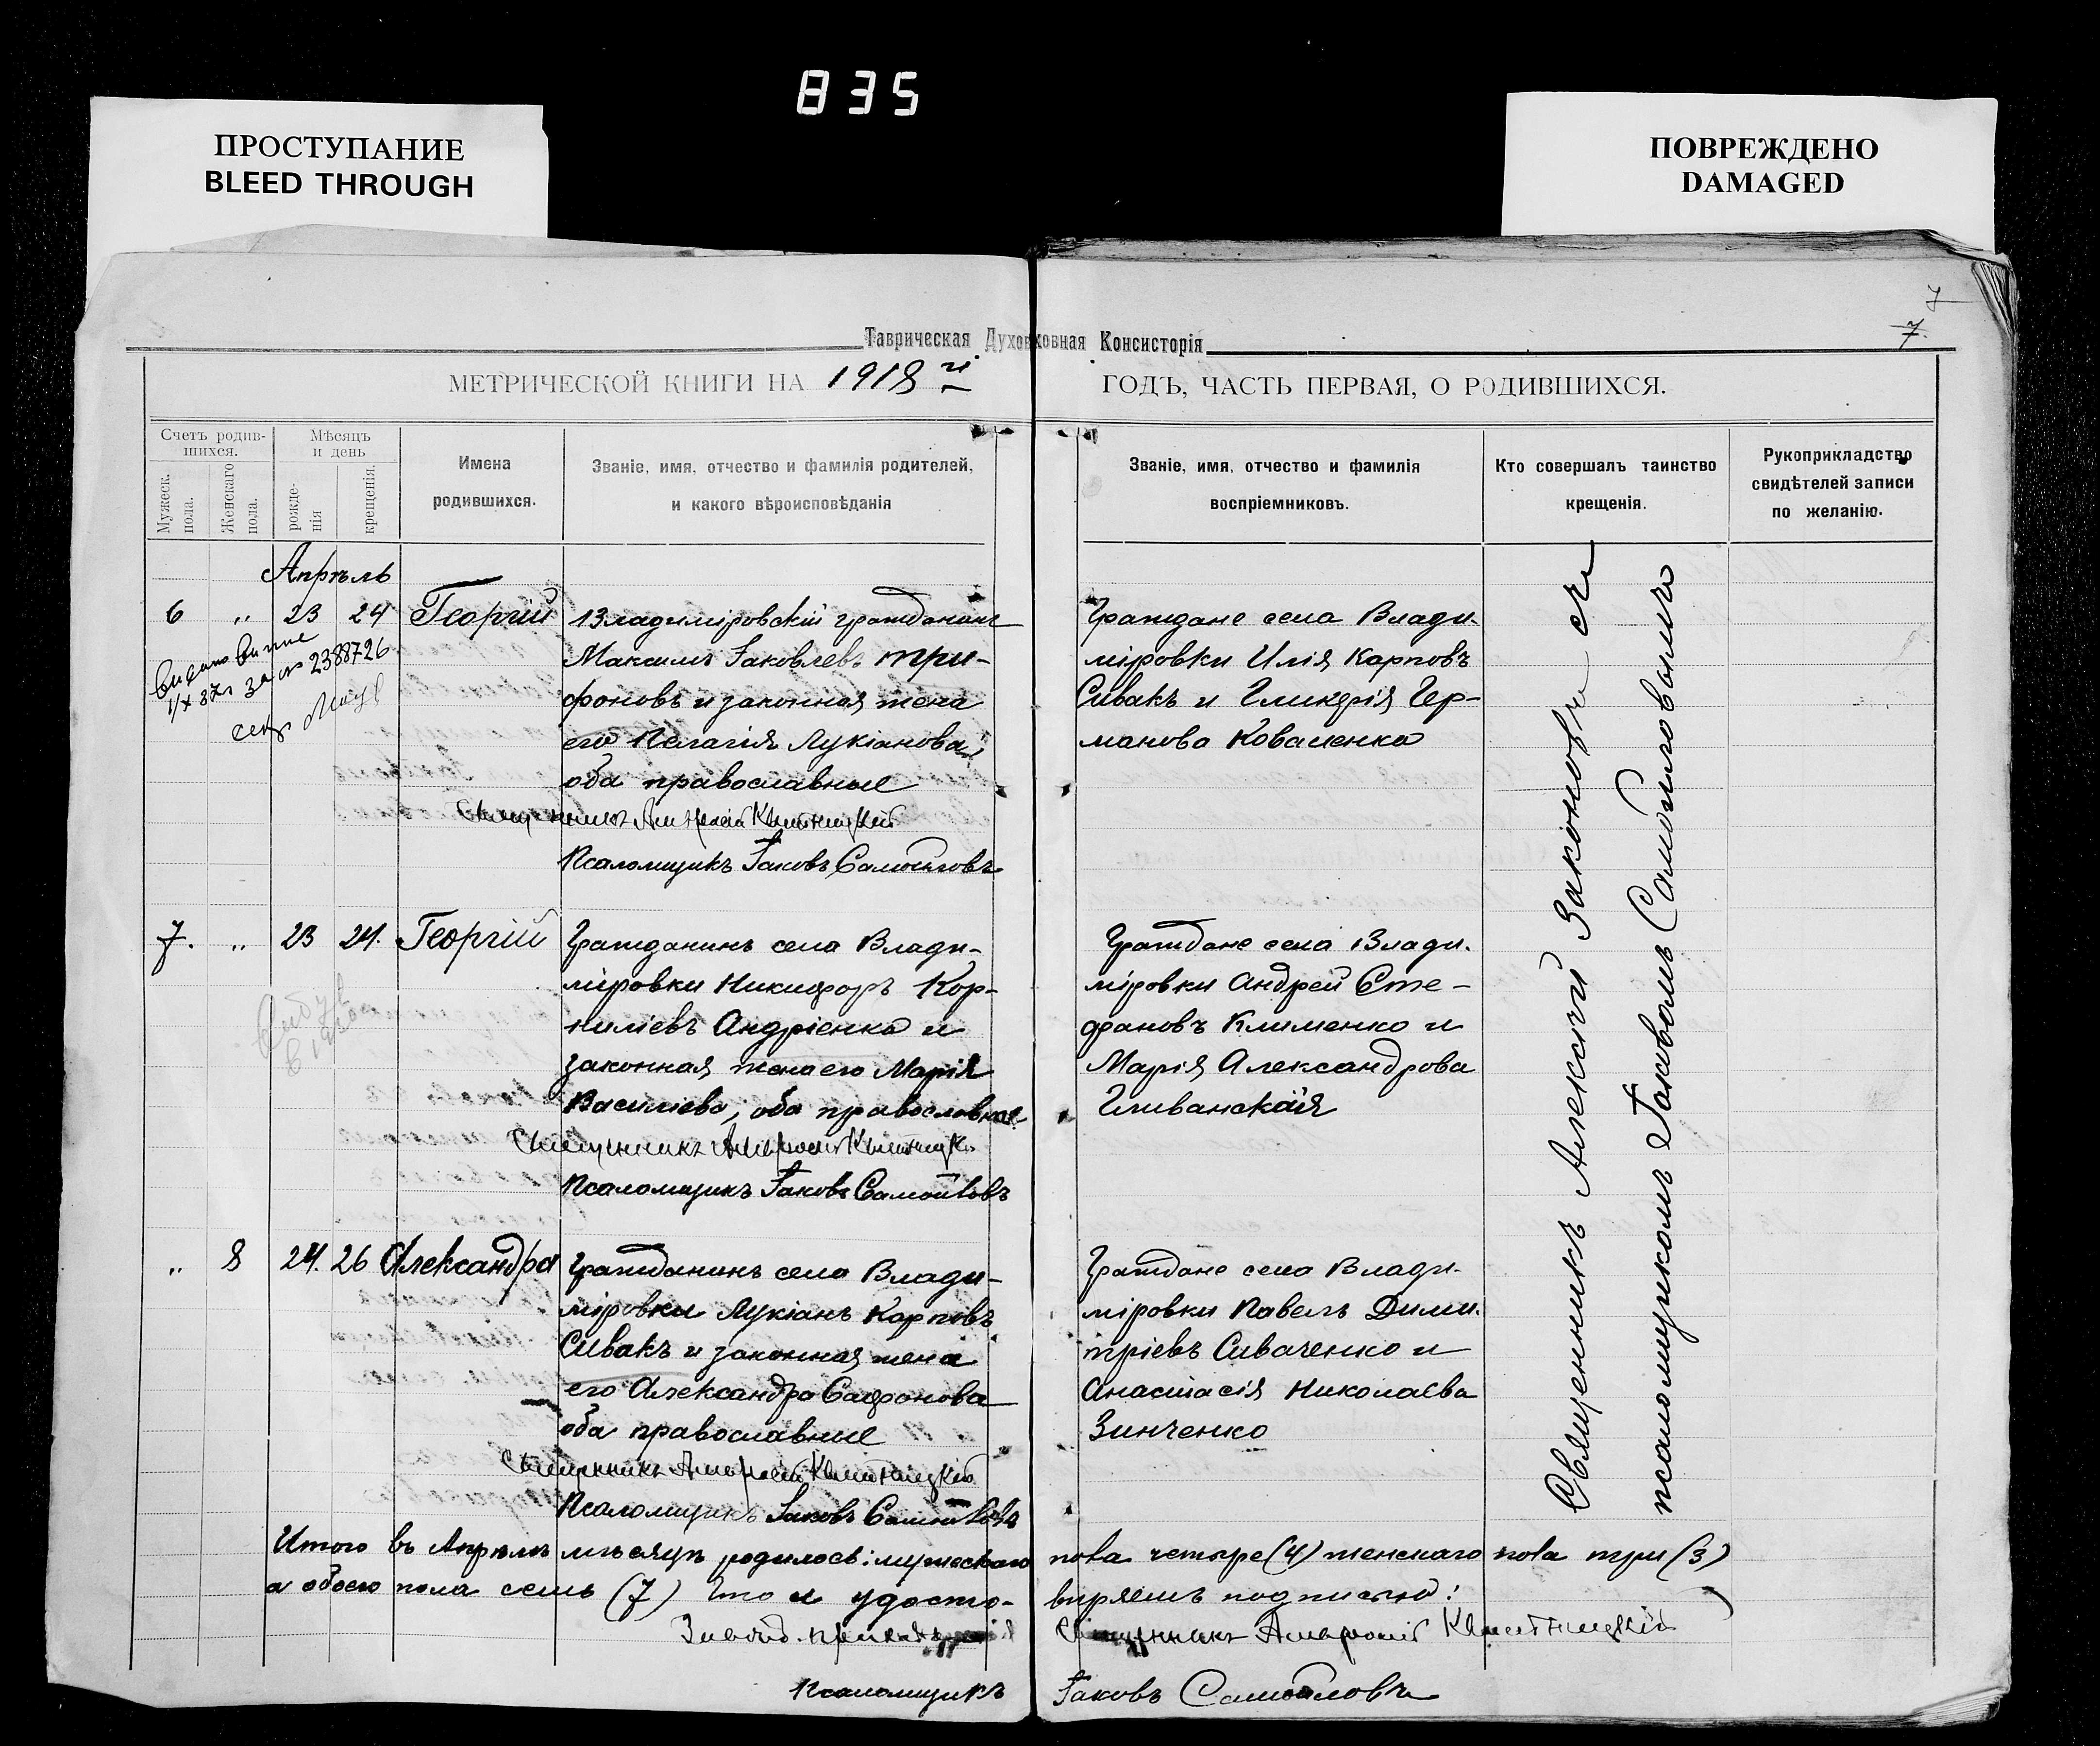 835
ПРОСТУПАНИЕ
BLEED THROUGH
ПОВРЕЖДЕНО
DAMAGED
7
7.
Таврическая Духовная Консисторія
МЕТРИЧЕСКОЙ КНИГИ НА 1918 й ГОДЪ, ЧАСТЬ ПЕРВАЯ, О РОДИВШИХСЯ.
Счетъ родив-
шихся.
Мужеск.
пола.
Женскаго
пола.
Мѣсяцъ
и день
рожде-
нія
крещенія.
Имена
родившихся.
Званіе, имя, отчество и фамилія родителей,
и какого вѣроисповѣданія
Званіе, имя, отчество и фамилія
воспріемниковъ.
Кто совершалъ таинство
крещенія.
Рукоприкладство
свидѣтелей записи
по желанію.
Апрѣль
6 „ 23 24 Георгій
Владиміровскій гражданинъ
Максимъ Іаковлевъ Три-
фоновъ и законная жена
его Пелагія Лукіанова,
оба православные
Священникъ
Псаломщикъ Іаковъ Самойловъ
2388726
Граждане села Влади-
міровки Илія Карповъ
Сивакъ и Гликерія Гер-
манова Коваленко
7. „ 23 24. Георгій
Гражданинъ села Влади-
міровки Никифоръ Кор-
ниліевъ Андріенко и
законная жена его Марія
Василіева, оба православные
Священникъ
Псаломщикъ Іаковъ Самойловъ
Граждане села Влади-
міровки Андрей Сте-
фановъ Клименко и
Марія Александрова
Гливанская
„ 8 24. 26 Александра
Гражданинъ села Влади-
міровки Лукіанъ Карповъ
Сивакъ и законная жена
его Александра Сафонова
оба православные
Священникъ
Псаломщикъ Іаковъ Самойловъ
Граждане села Влади-
міровки Павелъ Дими-
тріевъ Сиваченко и
Анастасія Николаева
Зинченко
Священникъ Алексій Законовъ съ
псаломщикомъ Іаковомъ Самойловымъ
Итого въ Апрѣлѣ мѣсяцѣ родилось: мужескаго пола четыре (4) женскаго пола три (3)
а обоего пола семь (7) Что и удосто-
вѣряемъ подписью:
Священникъ
Псаломщикъ Іаковъ Самойловъ